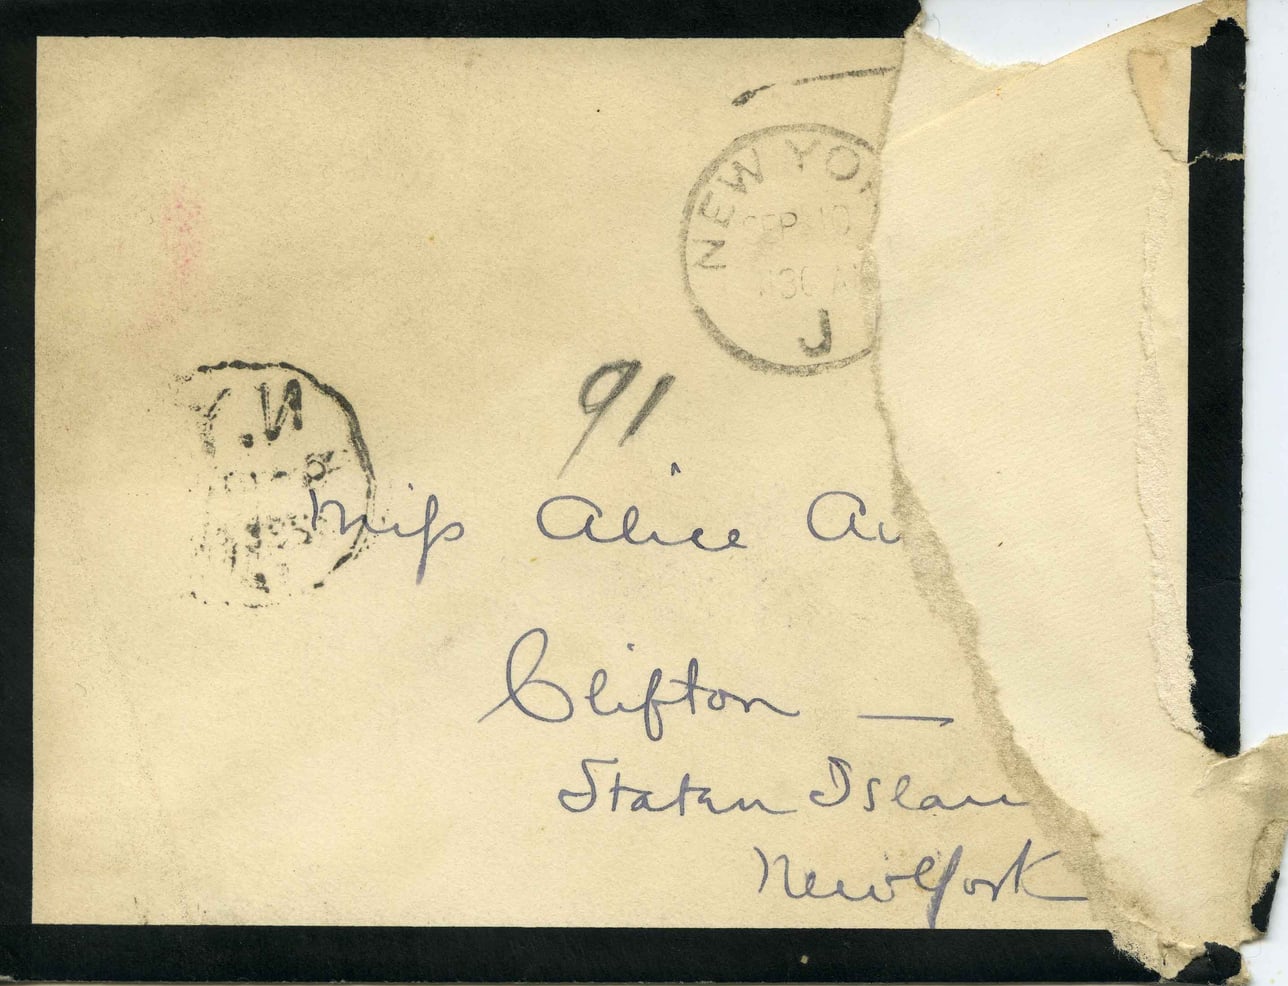 NEW YO
SEP 10
30 A
J
91
N.
Miss Alice Au
Clifton —
Staten Islan
New York